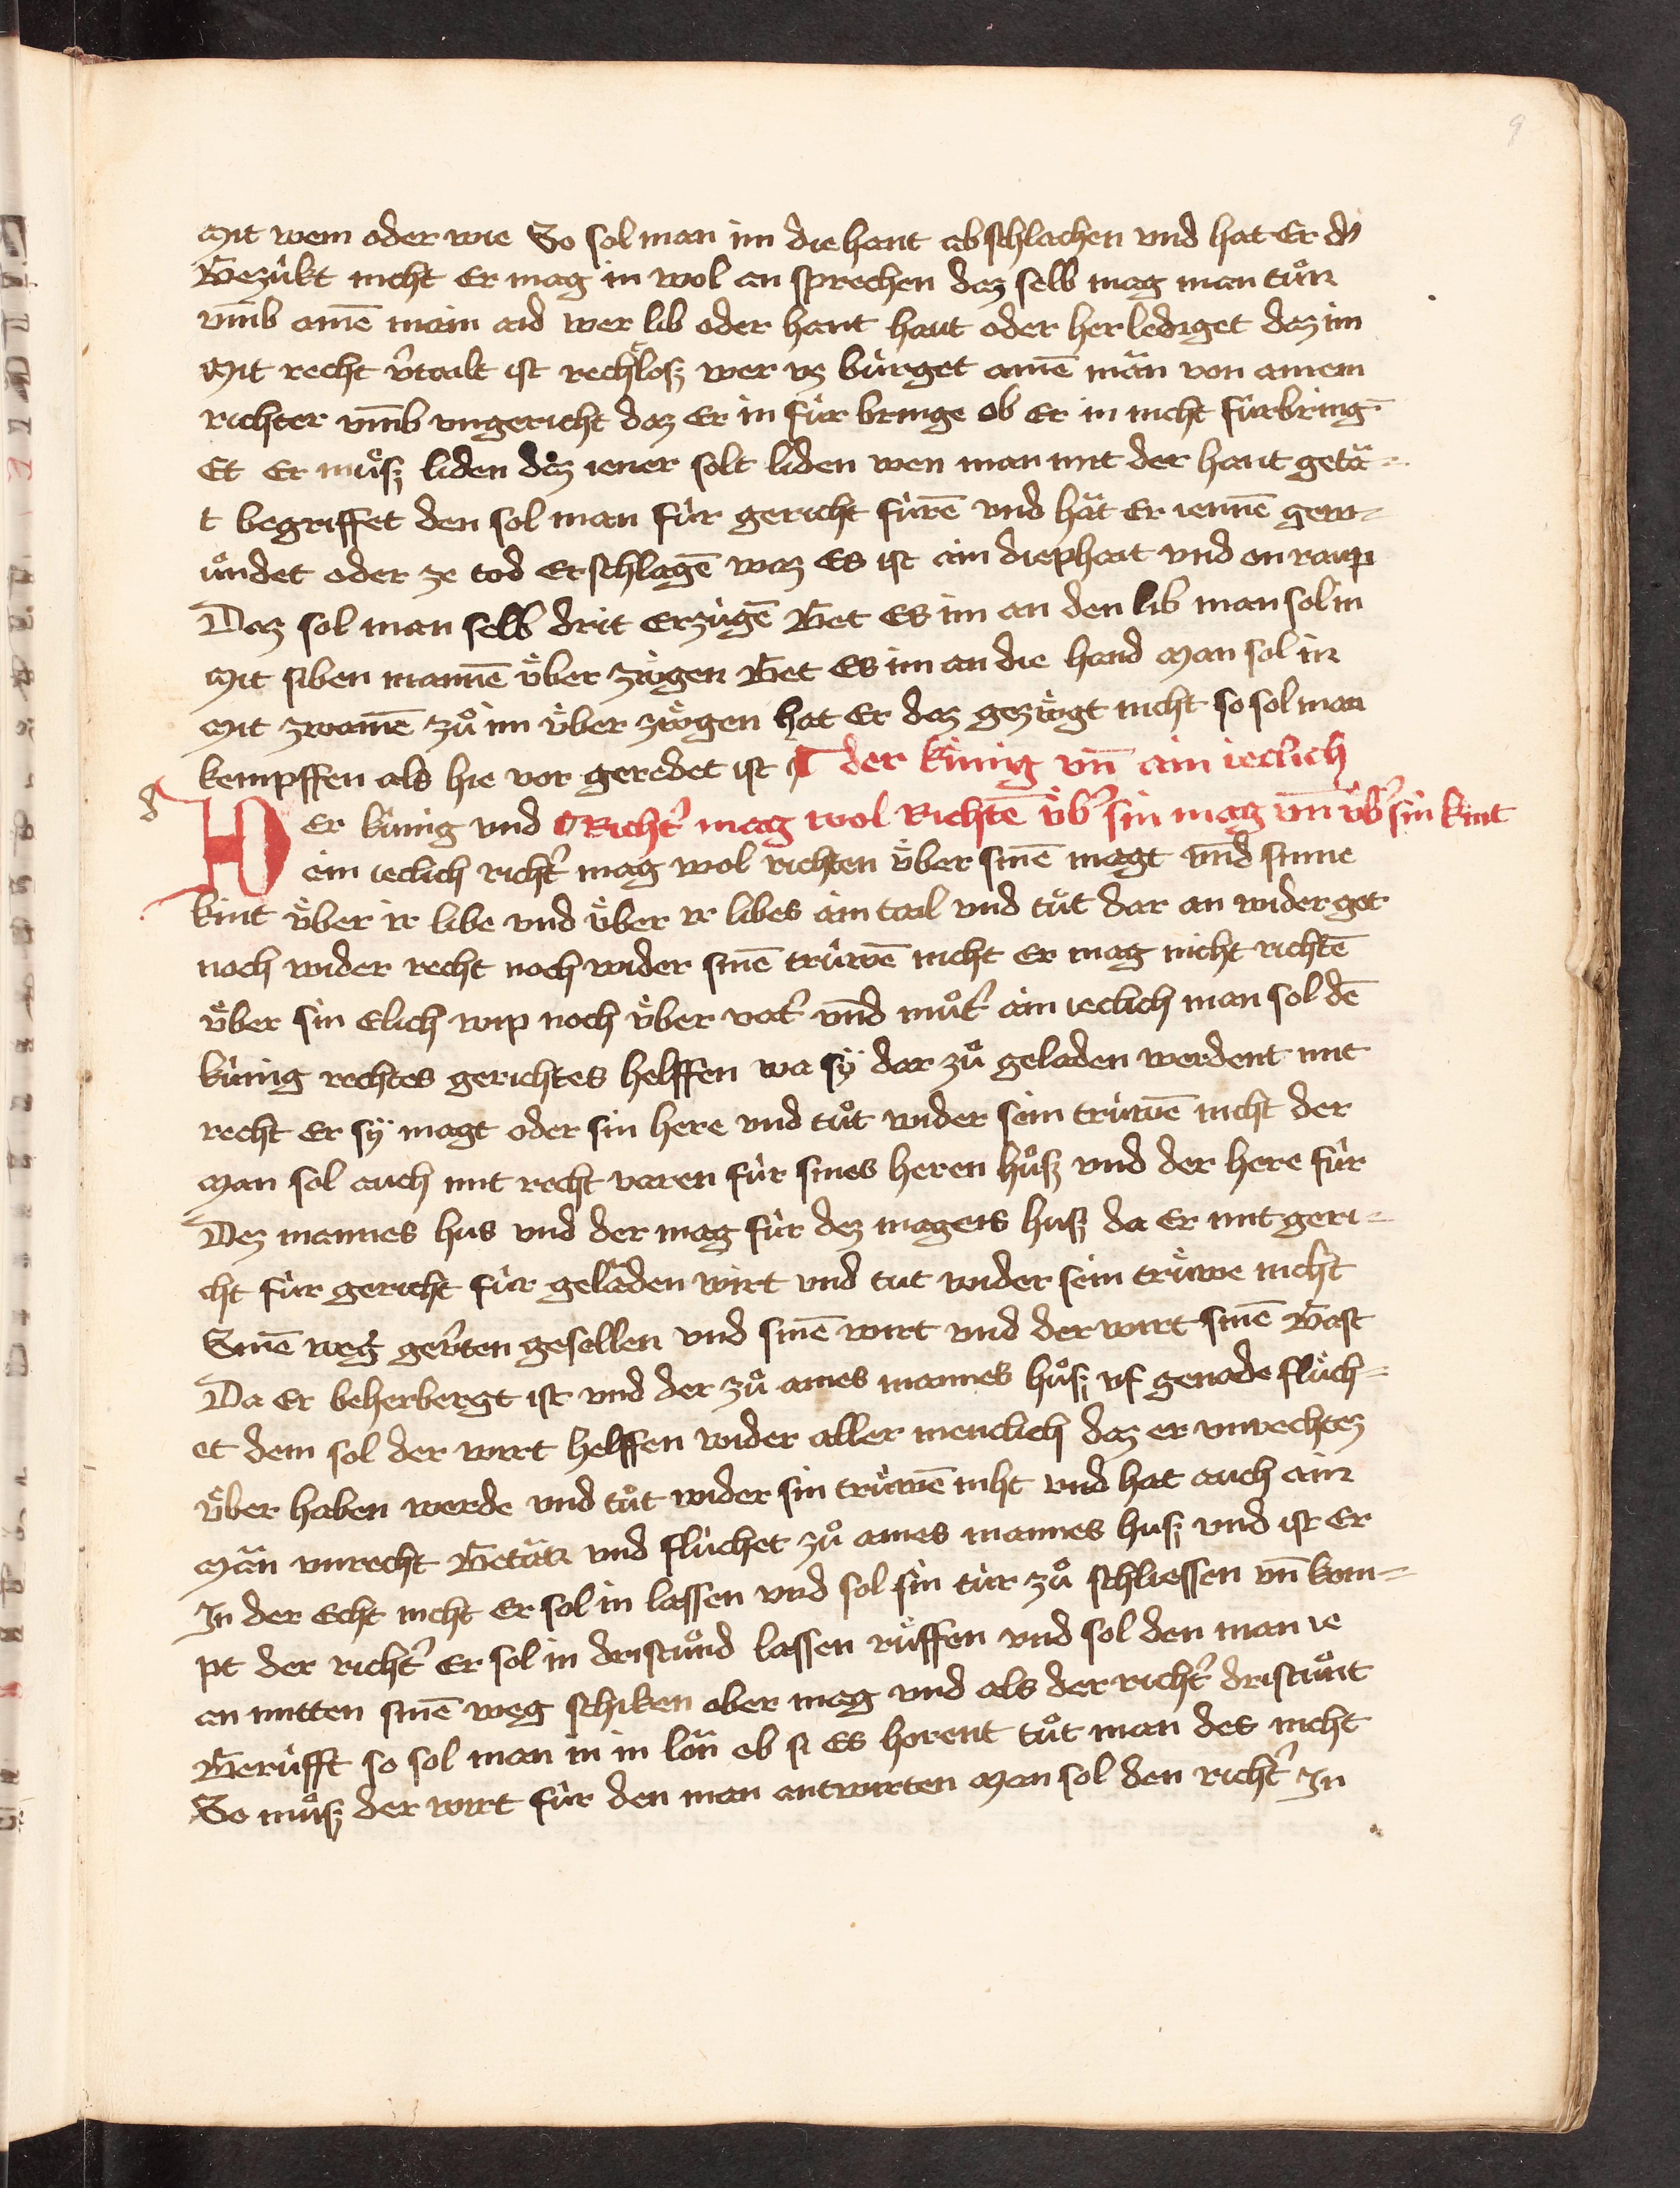 9
Mit wem oder wie So sol man im die hant abschlachen vnd hat Er dz
Gezúkt nicht Er mag in wol an sprechen daz selb mag man tuͦn
vm̄b ainē main aid wer lib oder hant haut oder her lediget daz im
Mit recht v̓tailt ist rechloß wer vz búrget ainē mān von ainem
richter vm̄b vngericht daz Er in fúr bringe ob Er in nicht fúrbring-
Et Er muͦß liden dez iener solt liden wen man mit der hant getä-
t begriffet den sol man fúr gericht fúrē vnd hät Er iennē gew-
uͦndet oder ze tod Erschlagē waz Es ist ain diephait vnd an raup
Daz sol man selb drit Erzúgē Get Es im an den lib man sol in
Mit siben mannē v́ber zúgen Get Es im an die hand Man sol in
Mit zwainē zuͦ im v́ber zúgen hat Er daz gezúgt nicht so sol man
kempffen als hie vor geredet ist ¶ der kúnig vn̄ ain ieclich
d
DEr kúnig vnd ¶ Richt̓ mag wol Richtē v́b̓ sin mag vn̄ v́b̓ sin kint
ain ieclich richt̓ mag wol richten v́ber sinē magt vnd sinne
kint v́ber ir libe vnd v́ber ir libes ain tail vnd tuͦt dar an wider got
noch wider recht noch wider sinē trúwē nicht Er mag nicht richtē
v́ber sin Elich wip noch v́ber vat̓ vnd muͦt̓ ain ieclich man sol dē
kúnig rechtes gerichtes helffen wa sÿ dar zuͦ geladen werdent mit
recht Er sÿ magt oder sin here vnd tuͦt wider sein trúwē nicht der
Man sol auch mit recht varen fúr sines heren huͦß vnd der here fúr
Dez mannes hus vnd der mag fúr dez magens huß da Er mit geri-
cht fúr gericht fúr geladen wirt vnd tut wider sein trúwe nicht
Sinē weg gev̓ten gesellen vnd sinē wirt vnd der wirt sinē Gast
Da Er beherbergt ist vnd der zuͦ aines mannes huͦß vf genade flúch-
et dem sol der wirt helffen wider aller menclich daz er vnrechtez
v́ber haben werde vnd tuͦt wider sin trúwē niht vnd hat auch ain
Män vnrecht Getän vnd flúchet zuͦ aines mannes huß vnd ist Er
In der Echt nicht Er sol in lassen vnd sol sin túr zuͦ schliessen vn̄ kom-
pt der richt̓ Er sol in dristuͦnd lassen ruͤffen vnd sol den man ie
an mitten sinē weg schiken ober mag vnd als der richt̓ dristuͦnt
Gerúfft so sol man in in lön ob si Es horent tuͦt man des nicht
So muͦß der wirt fúr den man antwurten Man sol den richt̓ In